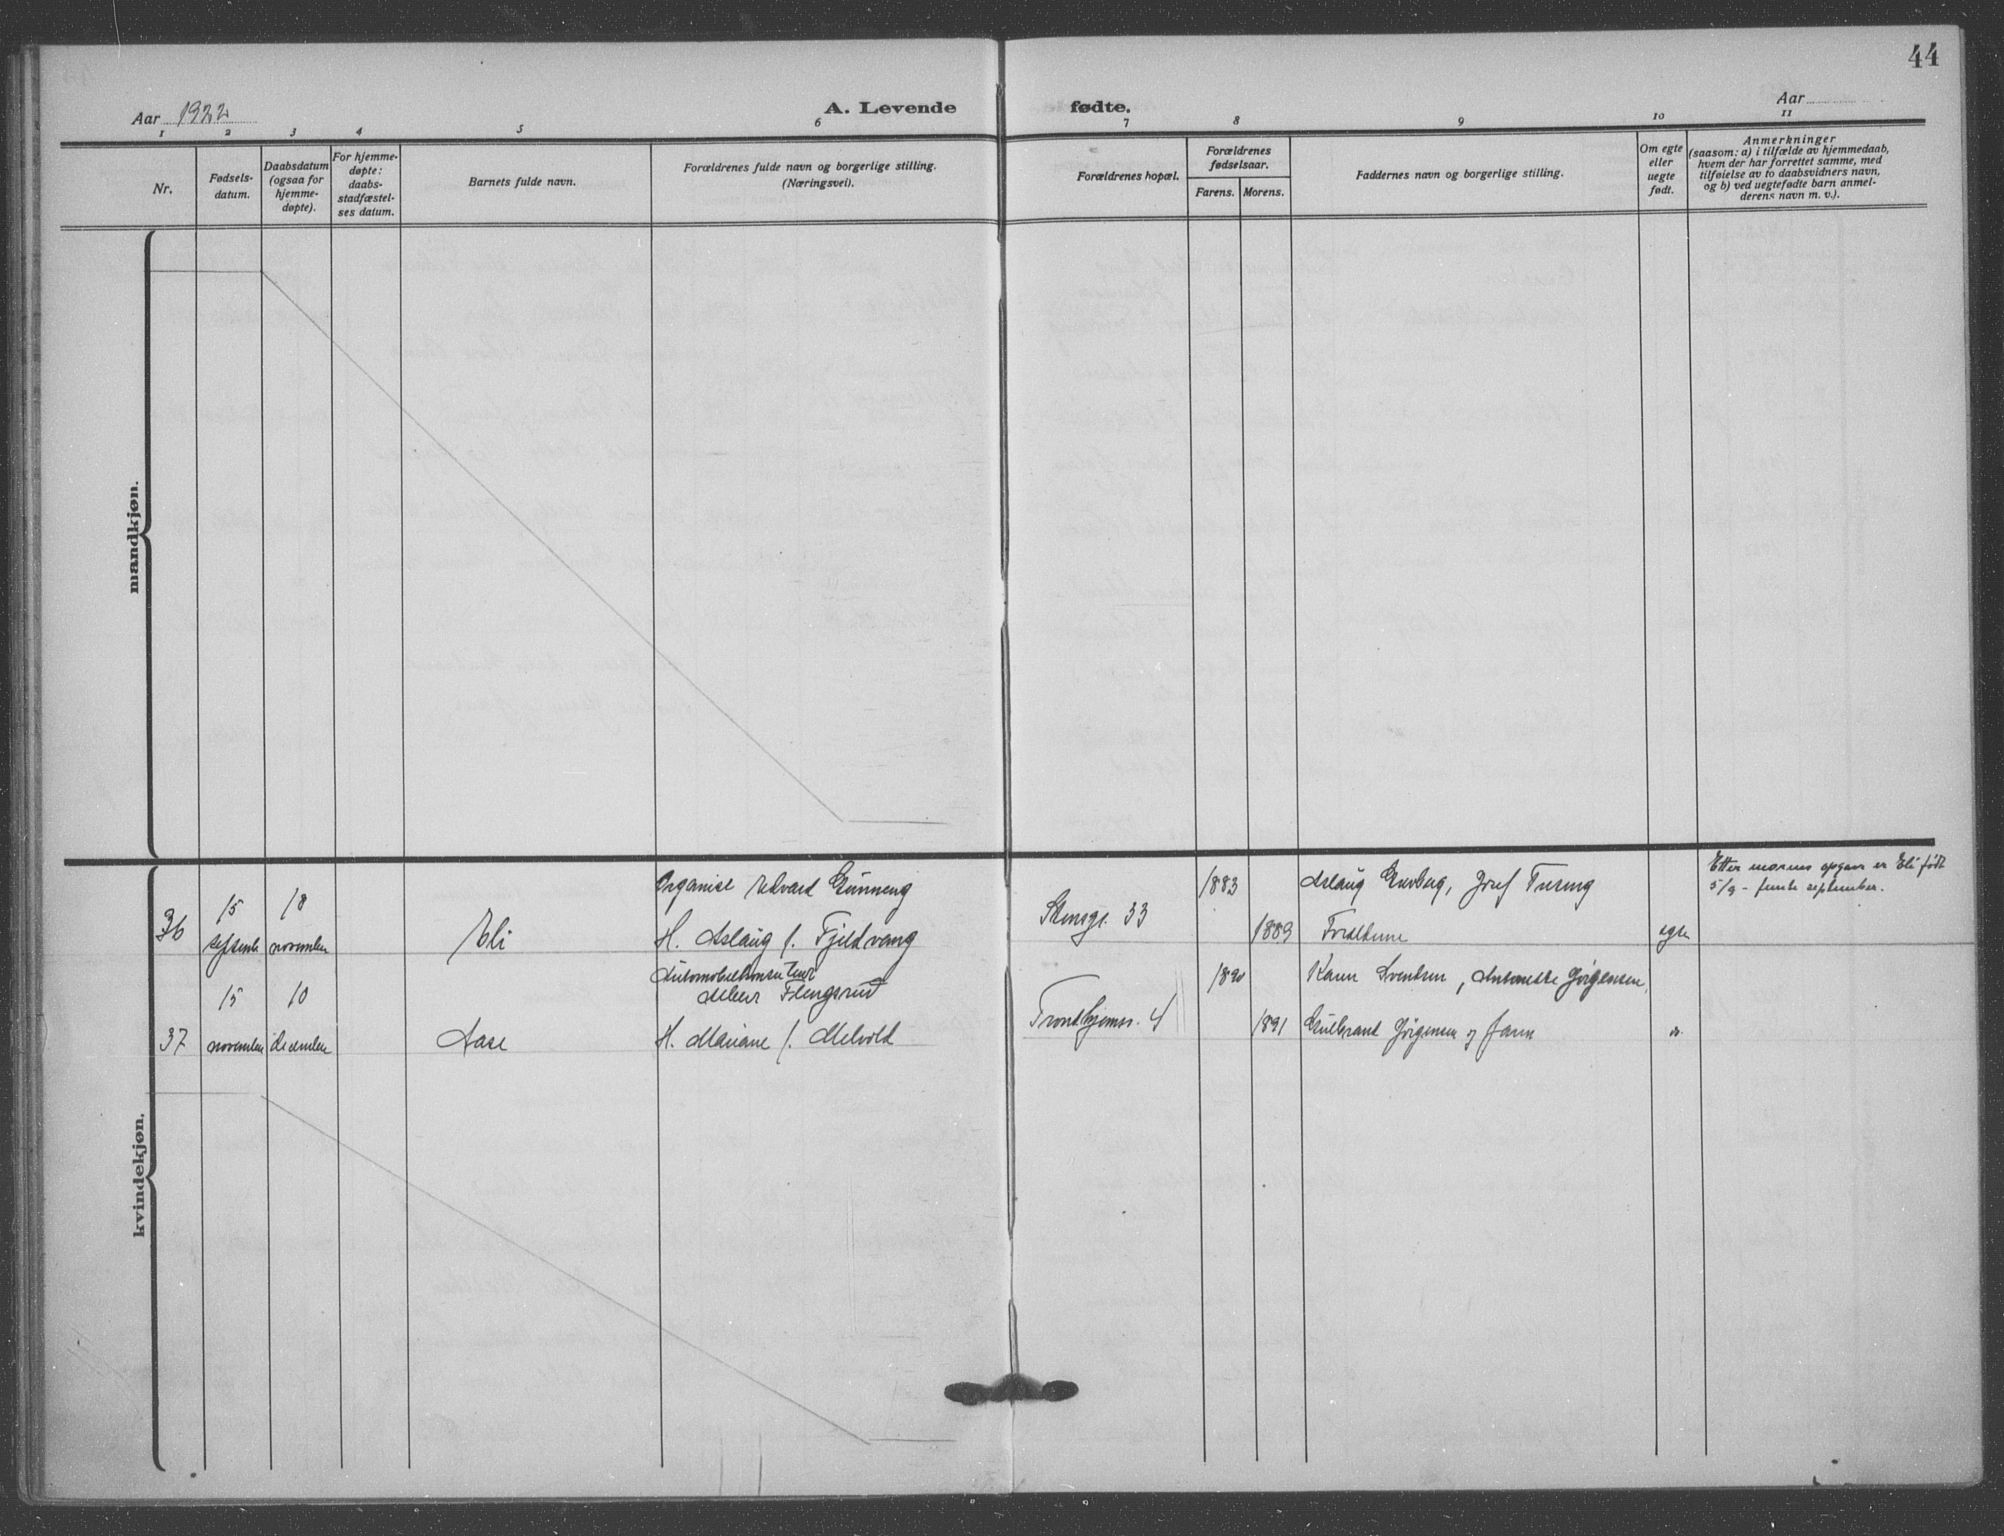 44
Aar 1922
A. Levende fødte.
Aar
1 2 3 4 5 6 7 8 9 10 11
Nr.
Fødsels-
datum.
Daabsdatum
(ogsaa for
hjemme-
døpte).
For hjemme-
døpte:
daabs-
stadfæstel-
ses datum.
Barnets fulde navn.
Forældrenes fulde navn og borgerlige stilling.
(Næringsvei).
Forældrenes hopæl.
Forældrenes
fødselsaar.
Farens. Morens.
Faddernes navn og borgerlige stilling.
Om egte
eller
uegte
født.
Anmerkninger
(saasom: a) i tilfælde av hjemmedaab,
hvem der har forrettet samme, med
tilføielse av to daabsvidners navn,
og b) ved uegtefødte barn anmel-
derens navn m. v.).
mandkjøn.
kvindekjøn.
36
15
septembr
18
november
Eli
Organist Edvard Gunneng
H. Aslaug f. Fjeldvang
Stensgt. 33
1883
1889
Aslaug Enberg, Josef Tusing
Foreldrene
egte
Etter morens opgave er Eli født
5/9 - femte september.
37
15
november
10
december
Aase
Automobilkonsulent
Albert Flengsrud
H. Mariane f. Melvold
Trondhjemsv. 4
1890
1891
Karen Svendsen, Antonette Jörgensen,
Gulbrand Jörgensen og